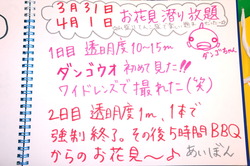 3月31日
4月1日
お花見潜り放題
ダンゴちゃん
1日目 透明度10~15m
ダンゴウオ初めて見た!!
ワイドレンズで撮れた(笑)
2日目 透明度1m、1本で
強制終了。その後5時間BBQ
からのお花見〜♪
あいぼん